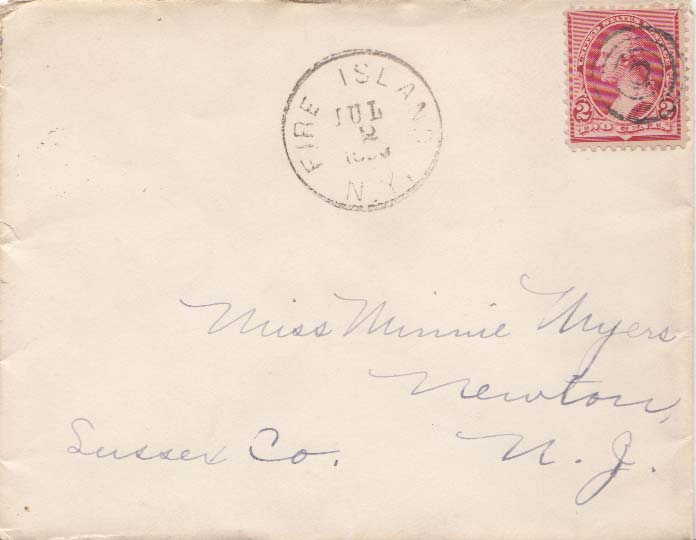 UNITED STATES POSTAGE
2 2
TWO CENTS
FIRE ISLAND
JUL
2
N.Y.
Miss Minnie Myers
Newton,
Sussex Co. N. J.